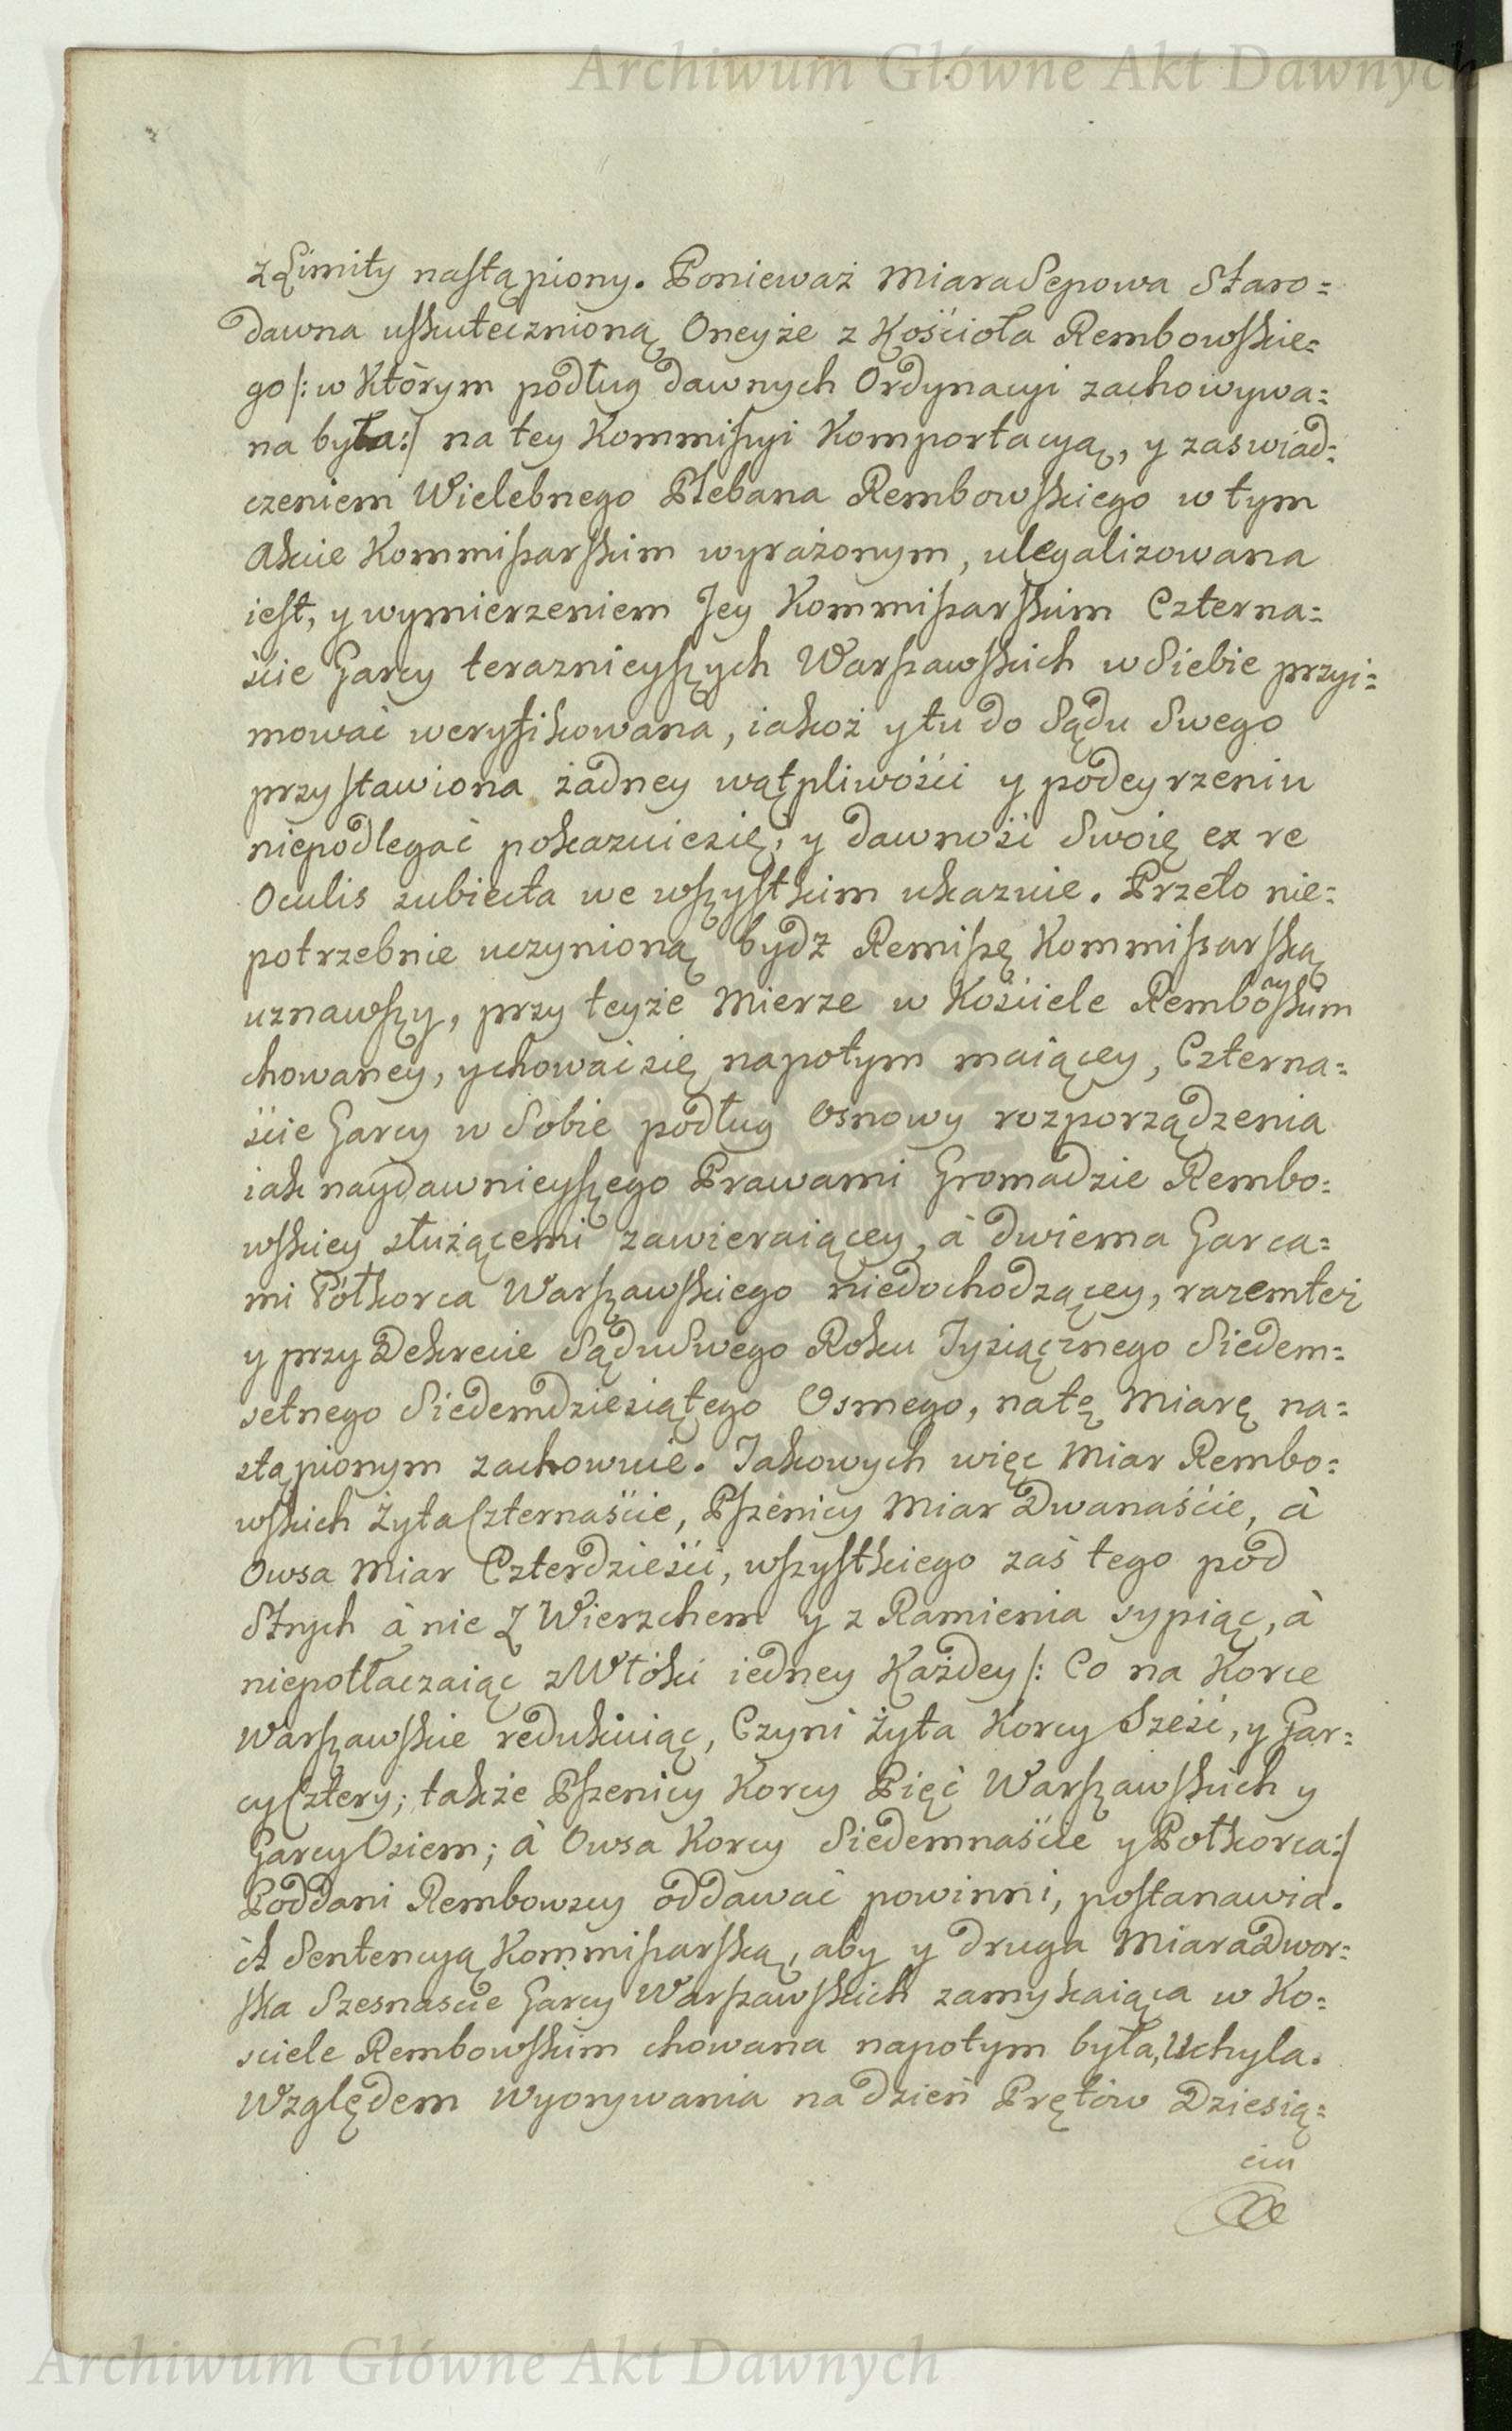 Archiwum Główne Akt Dawnych
z Limity nastąpiony. Ponieważ Miara Sepowa Staro=
dawna uskutecznioną Oneyże z Kościoła Rembowskie=
go /: w Którym podług dawnych Ordynacyi zachowywa=
na była :/ na tey Kommissyi Komportacyą, y zaswiad=
czeniem Wielebnego Plebana Rembowskiego w tym
Akcie Kommissarskim wyrażonym, ulegalizowana
iest, y wymierzeniem Jey Kommissarskim Czterna=
ście Garcy teraznieyszych Warszawskich w Siebie przyi=
mować weryfikowana, iakoż y tu do Sądu Swego
przystawiona żadney wątpliwości y podeyrzeniu
niepodlegać pokazuiesię, y dawność Swoię ex re
Oculis subiecta we wszystkim ukazuie. Przeto nie=
potrzebnie uczynioną bydz Remissę Kommissarską
uznawszy, przy teyże Mierze w Kościele Remboskim
chowaney, y chować się napotym maiącey, Czterna=
ście Garcy w Sobie podług Osnowy rozporządzenia
iak naydawnieyszego Prawami Gromadzie Rembo=
wskiey służącemi zawieraiącey, à dwiema Garca=
mi Półkorca Warszawskiego niedochodzącey, razemteż
y przy Dekrecie Sądu Swego Roku Tysiącznego Siedem=
setnego Siedemdziesiątego Osmego, na tę Miarę na=
stąpionym zachowuie. Jakowych więc Miar Rembo=
wskich Żyta Czternaście, Pszenicy Miar Dwanaście, à
Owsa Miar Czterdzieści, wszystkiego zaś tego pod
Strych à nie Z Wierzchem y z Ramienia sypiąc, à
niepotłaczaiąc z Włóki iedney Każdey /: Co na Korce
Warszawskie redukuiąc, Czyni Żyta Korcy Sześć, y Gar=
cy Cztery; także Pszenicy Korcy Pięć Warszawskich y
Garcy Osiem; à Owsa Korcy Siedemnaście y Połkorca :/
Poddani Rembowscy oddawać powinni, postanawia.
A Sentencyą Kommissarską, aby y druga Miara Dwor=
ska Szesnascie Garcy Warszawskich zamykaiąca w Ko=
sciele Rembowskim chowana napotym była, Uchyla.
Względem Wyorywania na dzień Prętów Dziesią=
ciu
Archiwum Główne Akt Dawnych